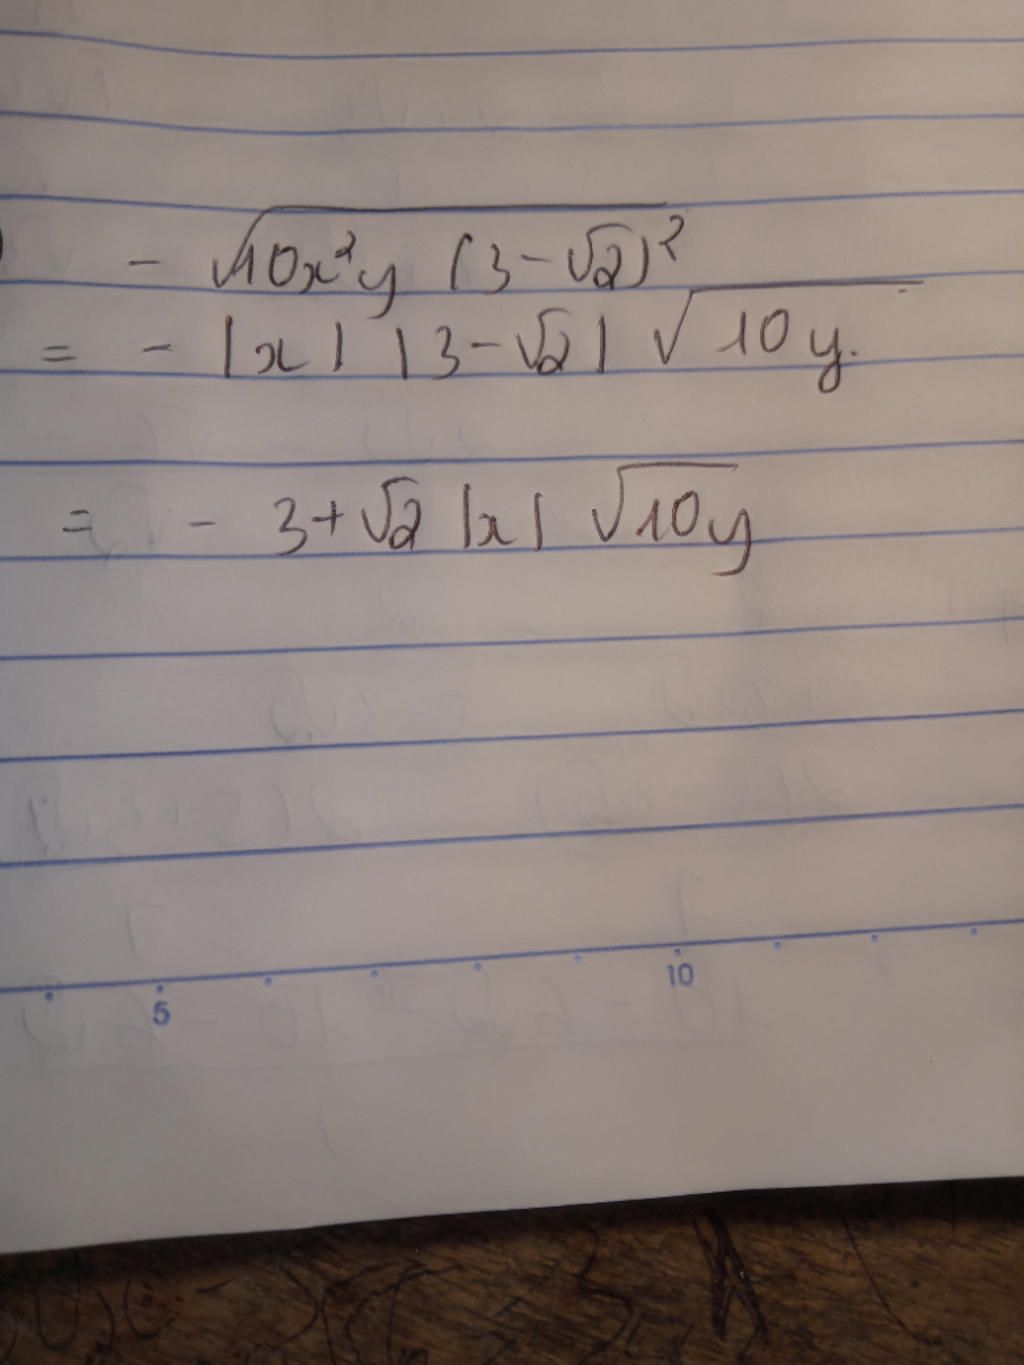 ) - √10x²y (3-√2)²
= - |x| |3-√2| √10y.
= - 3+√2 |x| √10y
5 10